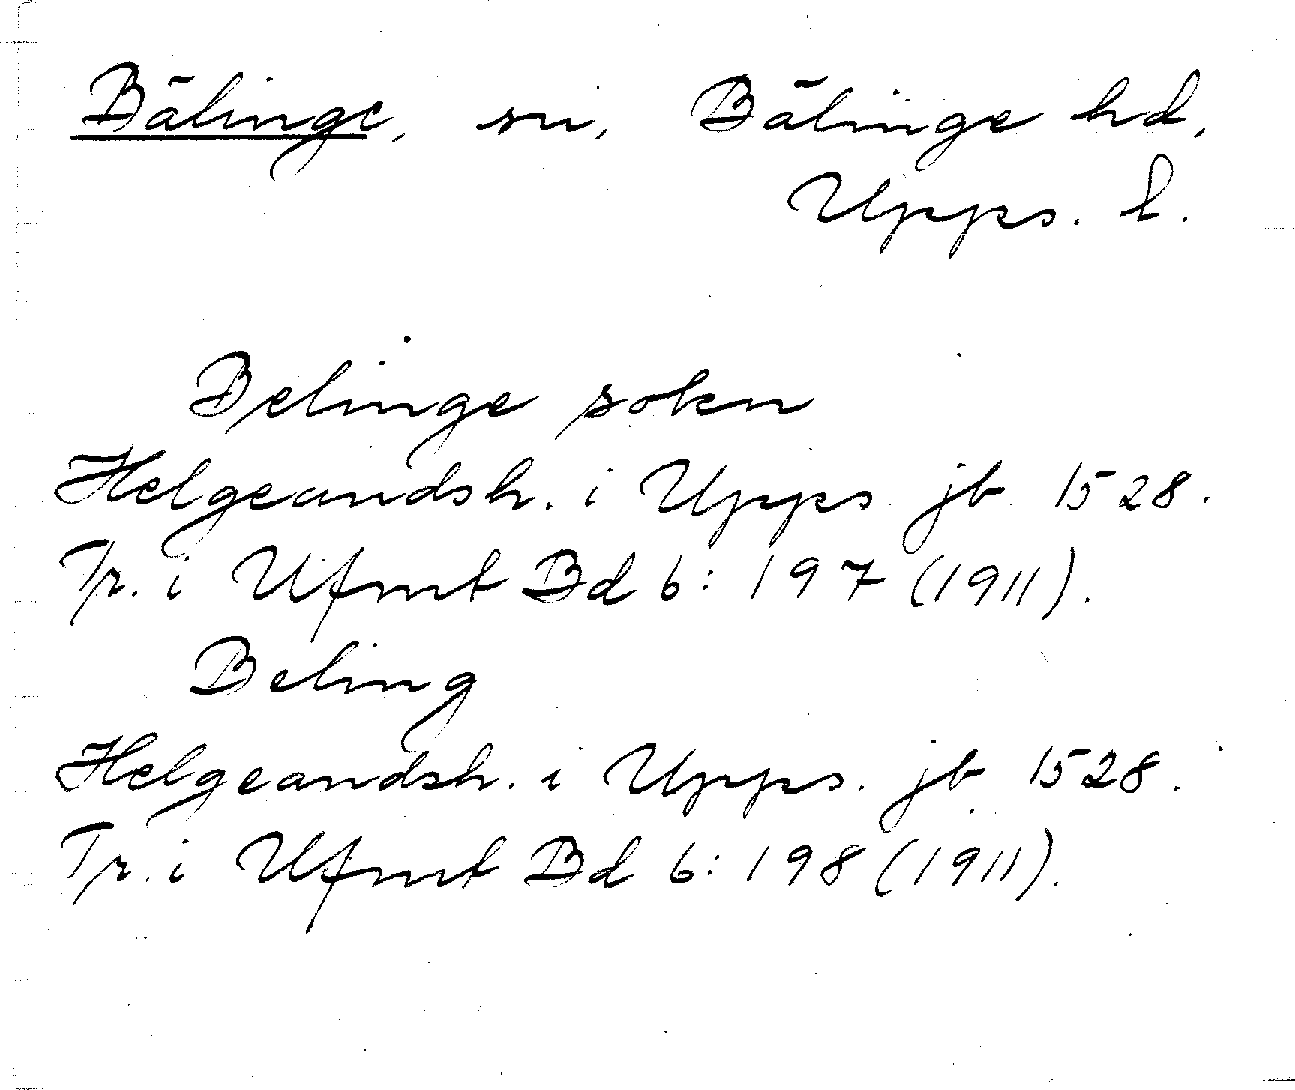 Bälinge, sn, Bälinge hd,
Upps. l.
Belinge sokn
Helgeandsh. i Upps jb 1528.
Tr. i Ufmt Bd 6: 197 (1911).
Beling
Helgeandsh. i Upps. jb 1528.
Tr. i Ufmt Bd 6: 198 (1911).